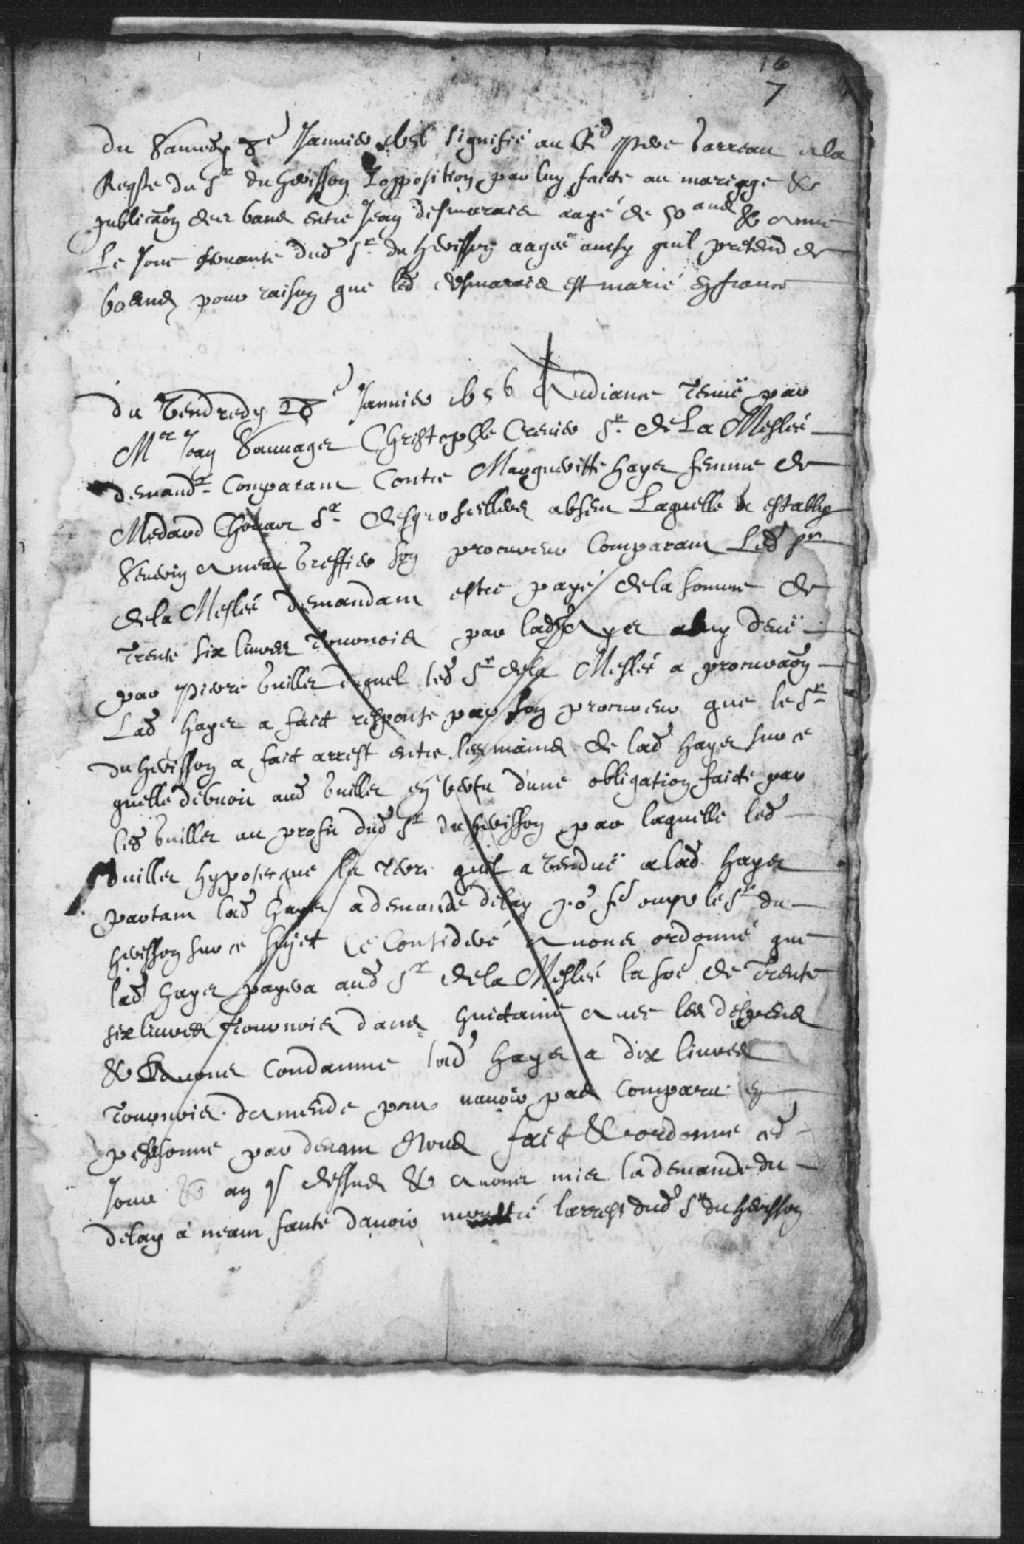 16
7
du Samedy 8e Janvier 1656 signifié au Rd Pere barreau a la
Reqste du Sr du herisson Lopposition par luy faicte au mariage &
publicãon des bans entre Jean desmarais aagé de 50 ans & Anne
Le Jour servante dud Sr du herisson aagée aussy quil pretend de
60 ans pour raison que led desmarais est marié en france
du Vendredy 28e Janvier 1656 Audiance Tenuë par
Mre Jean Sauvaget Christophle Crevier Sr de La Meslée
demandr Comparant Contre Margueritte hayet femme de
Medard Chouart Sr desgroseillers absent Laquelle a estably
Severin ameau Greffier son procureur Comparant Led Sr
de la Meslée demandant estre payé de la somme de
Trente six livres Tournois par lad hayet a luy deuë
par pierre Guillet duquel led Sr de la Meslée a procurãon
Lad hayet a faict response par son procureur que le Sr
du herisson a faict arrest entre les mains de lad hayet sur ce
quelle debvoit aud Guillet en vertu dune obligation faicte par
led Guillet au profit dud Sr du herisson par laquelle led
Guillet hypoteque la terre quil a venduë a lad hayet
partant lad hayet a demandé delay po le Sr du
herisson sur ce sujet Ce Consideré avons ordonné que
lad hayet payera aud Sr de la Meslée la soẽ de Trente
six livres Tournois dans huictaine avec les despens
& avons condamné lad hayet a dix livres
Tournois damende pour navoir pas comparu en
personne par devant Nous faict & ordonné ced
Jour & an q dessus & avons mis la demande du
delay a neant faute davoir monstré larrest dud Sr du herisson